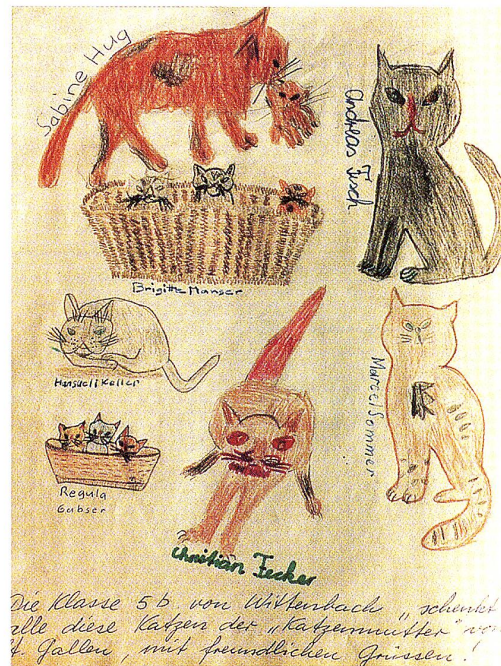 Sabine Hug
Andreas Fisch
Brigitte Manser
Hansueli Keller
Marcel Sommer
Regula
Gubser
Christian Fecker
Die Klasse 5b von Wittenbach „schenkt
alle diese Katzen der „Katzenmutter" von
St. Gallen, mit freundlichen Grüssen!